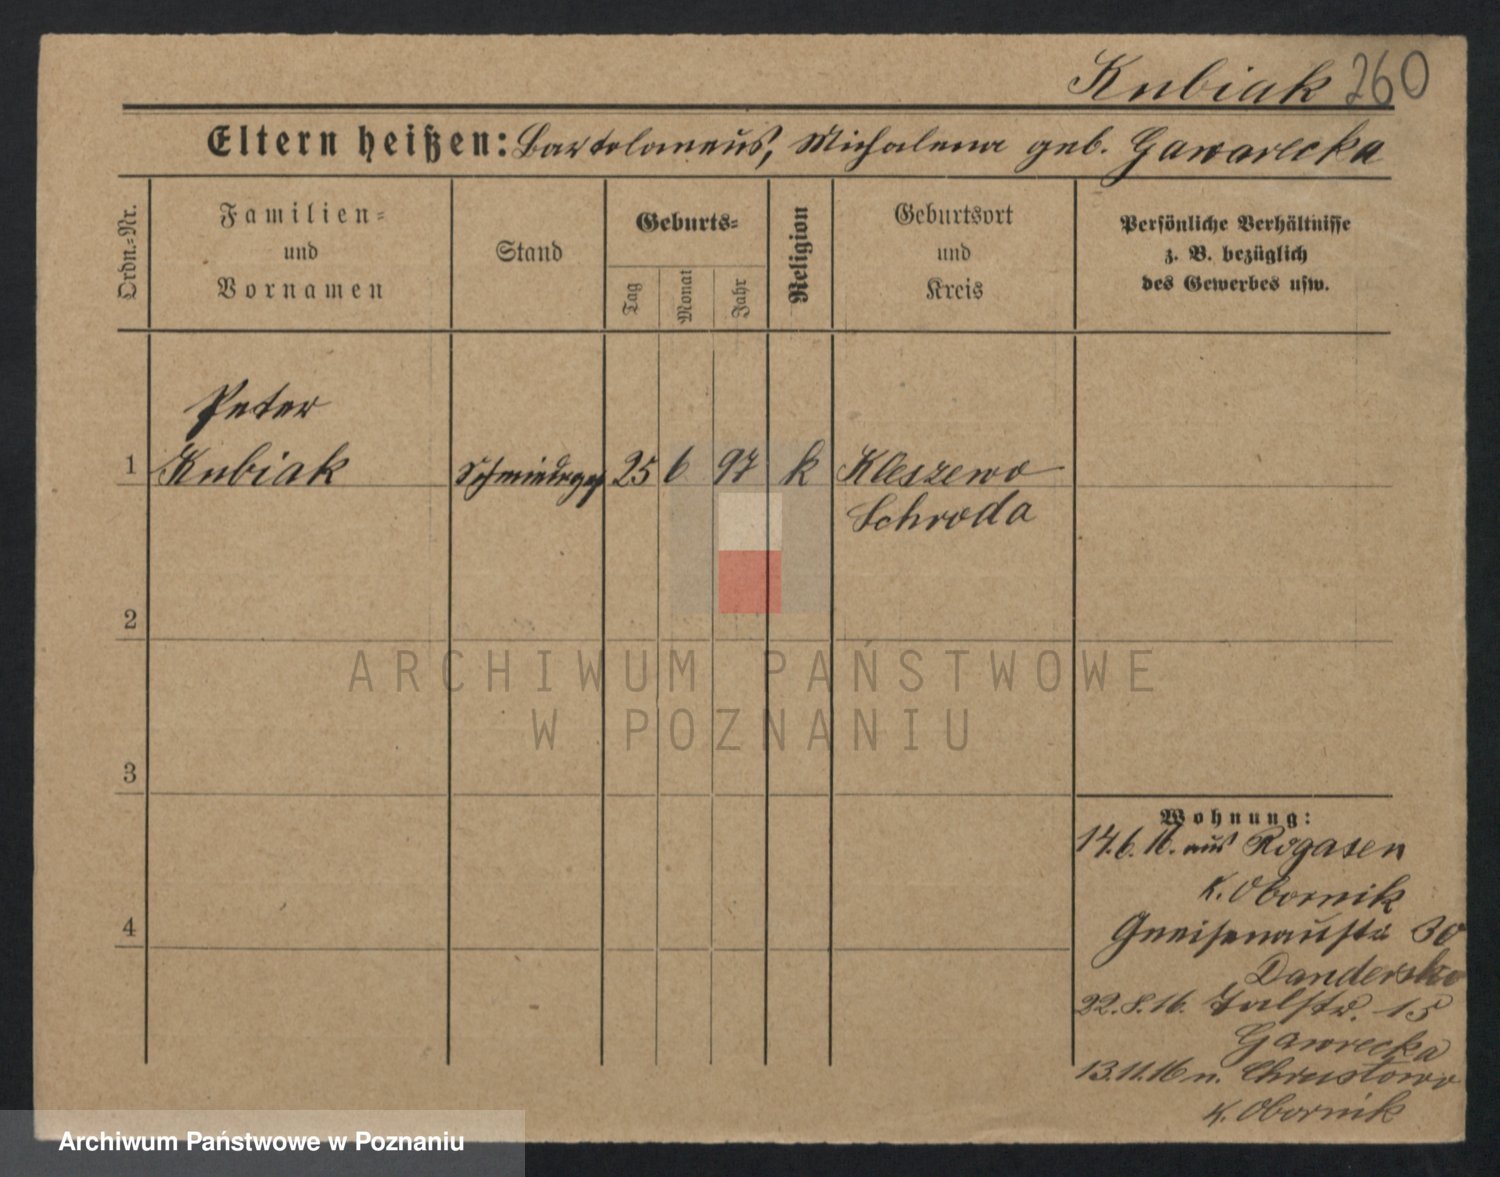 Kubiak 260
Eltern heißen: Bartolomeus, Michalena geb. Gawarecka
Ordn.-Nr.
Familien-
und
Vornamen
Stand
Geburts-
Tag
Monat
Jahr
Religion
Geburtsort
und
Kreis
Persönliche Verhältnisse
z. B. bezüglich
des Gewerbes usw.
Peter
1 Kubiak Schmiedeges 25 6 97 k Kleszewo
Schroda
2
ARCHIWUM PAŃSTWOWE
W POZNANIU
3
Wohnung:
14.6.16. aus Rogasen
K. Obornik
4
Gneisenaustr 30
Danderska
22.8.16. Talstr. 15
Gawrecka
13.11.16 n. Chrustowo
K. Obornik
Archiwum Państwowe w Poznaniu